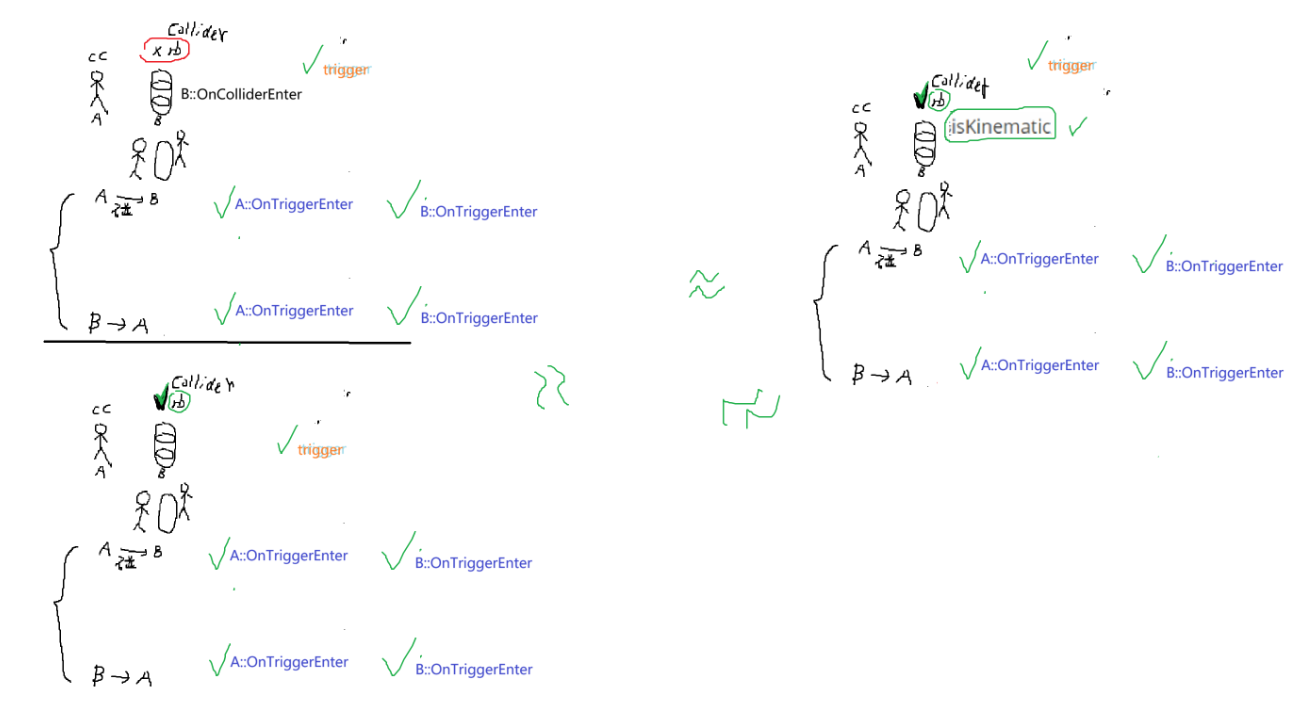 Collider
x rb
cc
trigger
B::OnColliderEnter
A
B
A → B
A::OnTriggerEnter
B::OnTriggerEnter
B → A
A::OnTriggerEnter
B::OnTriggerEnter
Collider
rb
cc
trigger
A
B
A → B
A::OnTriggerEnter
B::OnTriggerEnter
B → A
A::OnTriggerEnter
B::OnTriggerEnter
trigger
Collider
rb
cc
isKinematic
A
B
A → B
A::OnTriggerEnter
B::OnTriggerEnter
B → A
A::OnTriggerEnter
B::OnTriggerEnter